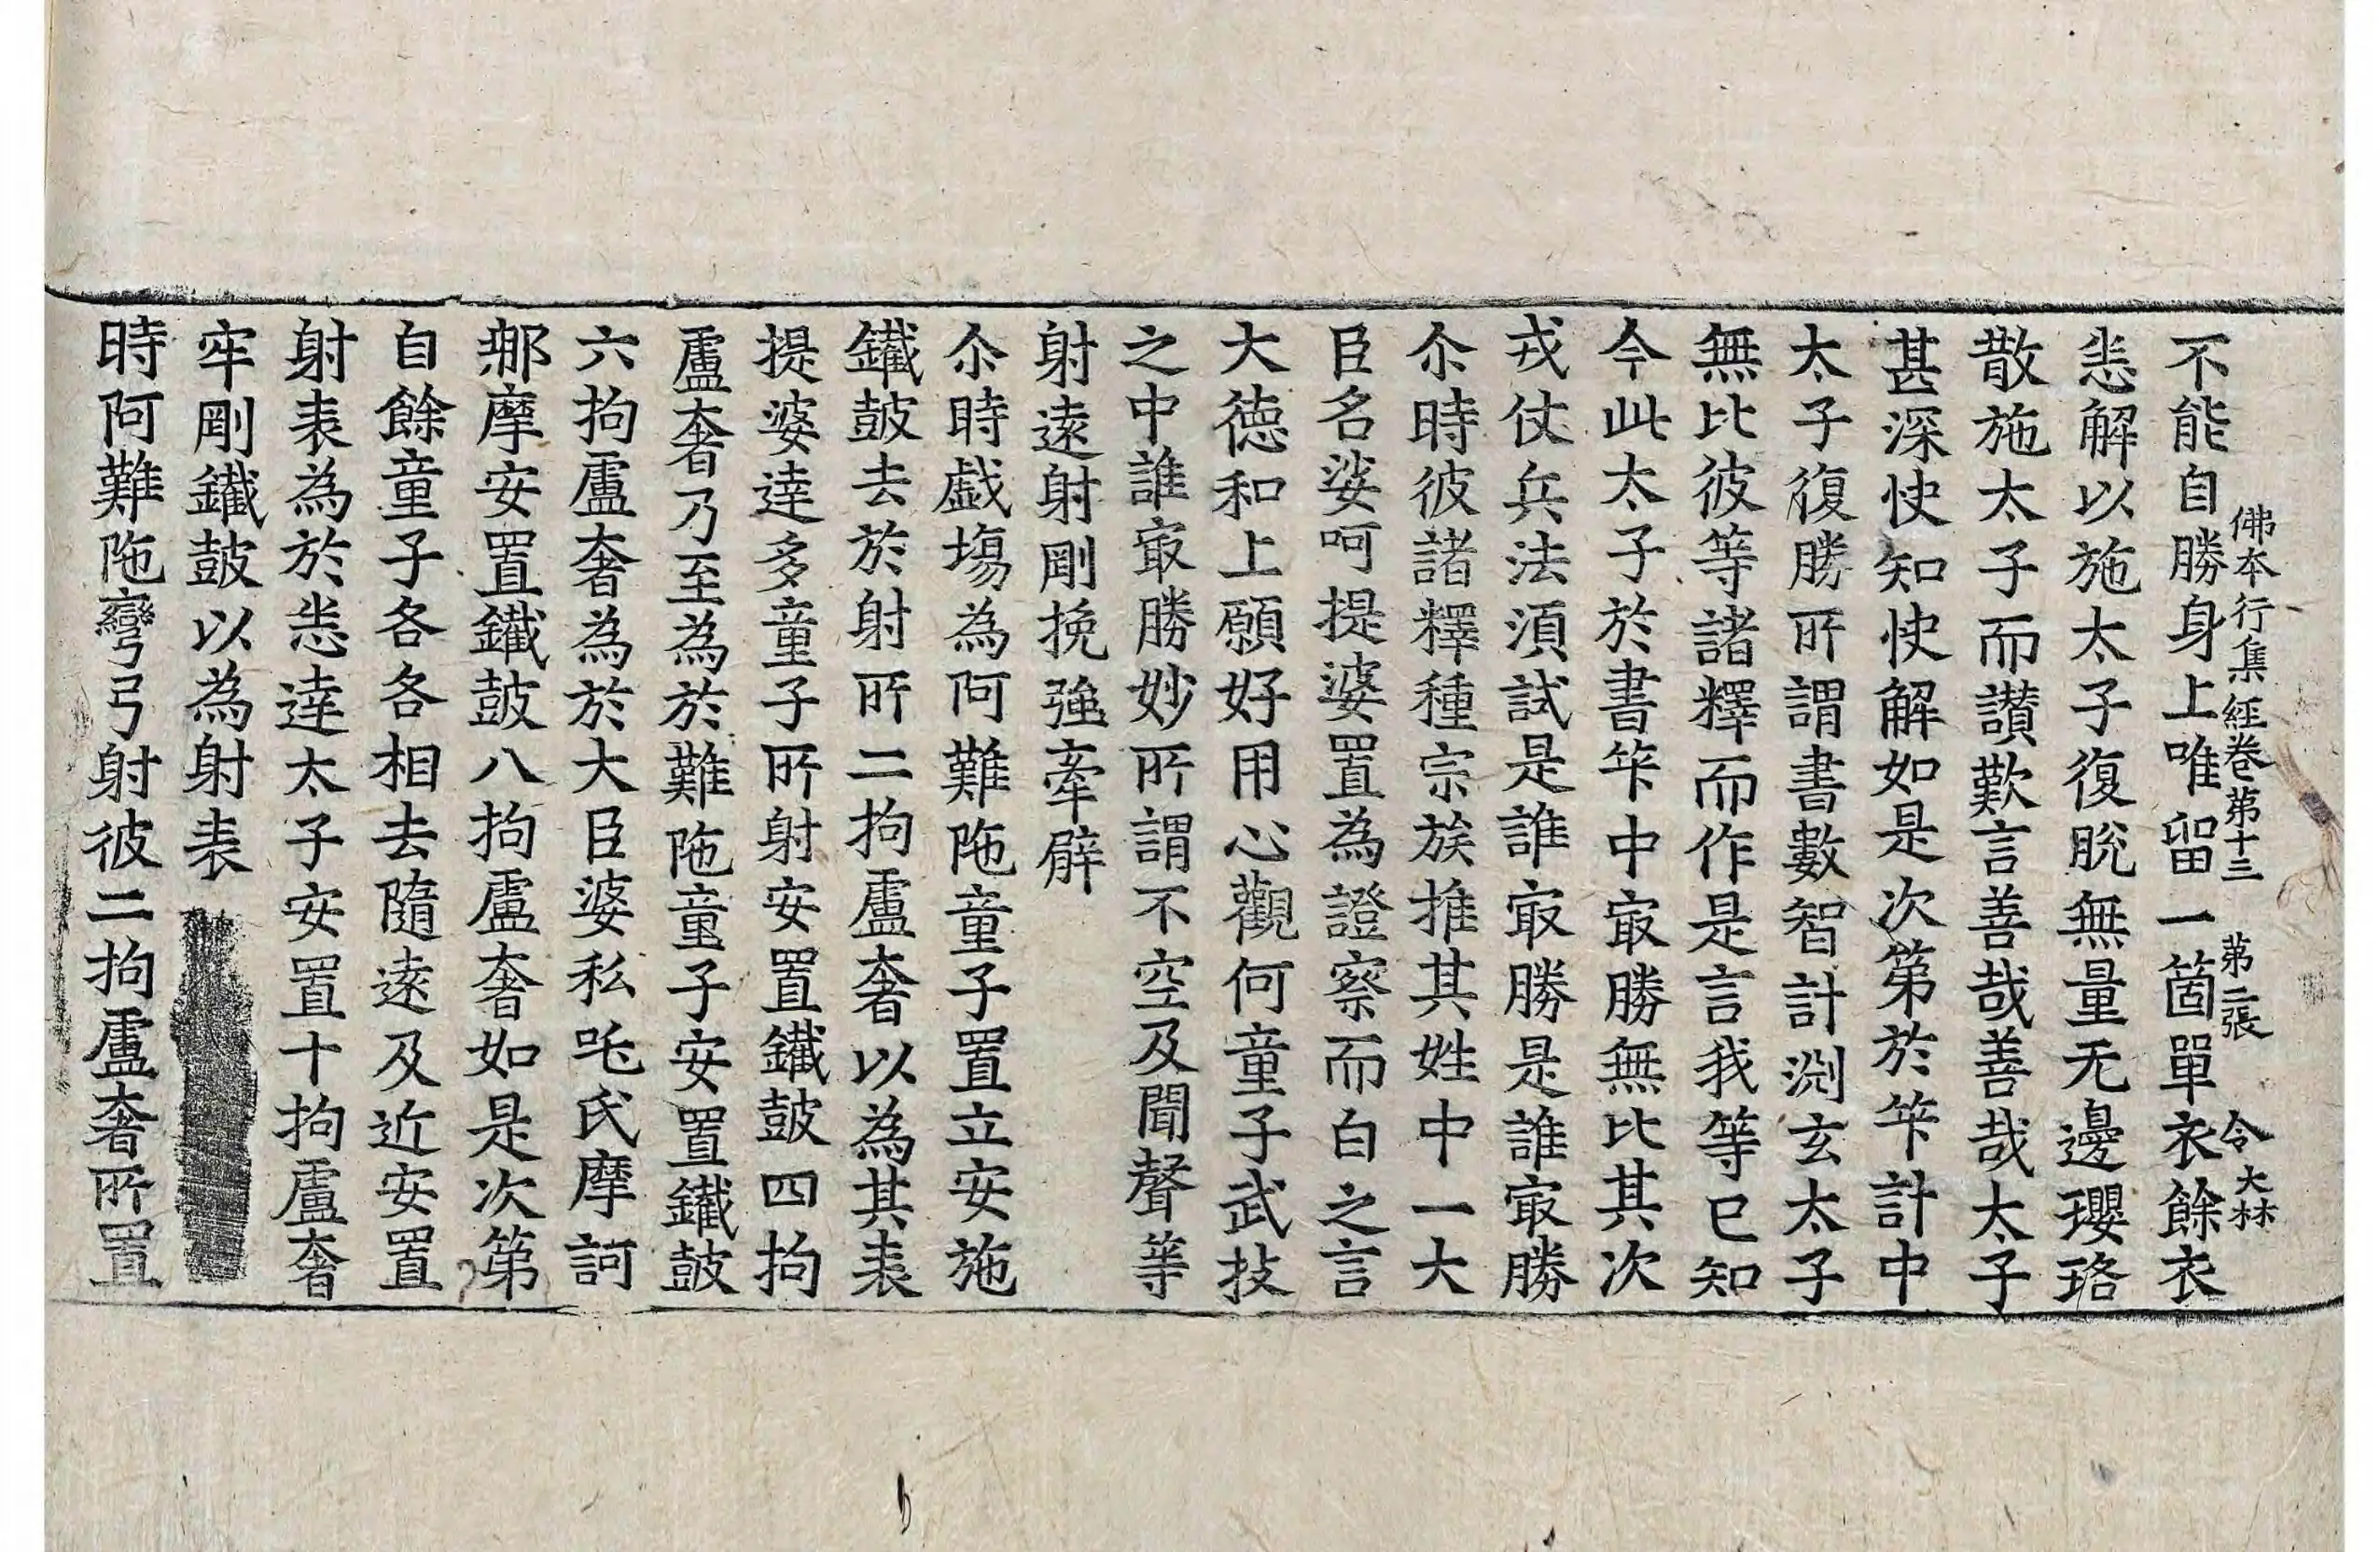 佛本行集經卷第十三　第二張　令　大林
不能自勝身上唯留一箇單衣餘衣
悉解以施太子復脫無量无邊瓔珞
散施太子而讃歎言善哉善哉太子
甚深快知快解如是次第於筭計中
太子復勝所謂書數智計測玄太子
無比彼等諸釋而作是言我等已知
今此太子於書筭中㝡勝無比其次
戎仗兵法須試是誰㝡勝是誰㝡勝
尒時彼諸釋種宗族推其姓中一大
臣名娑呵提婆置為證察而白之言
大德和上願好用心觀何童子武技
之中誰㝡勝妙所謂不空及聞聲等
射遠射剛挽強牽㢸
尒時戯塲為阿難陁童子置立安施
鐵鼓去於射所二拘盧奢以為其表
提婆達多童子所射安置鐵鼓四拘
盧奢乃至為於難陁童子安置鐵鼓
六拘盧奢為於大臣婆私吒氏摩訶
那摩安置鐵鼓八拘盧奢如是次第
自餘童子各各相去隨遠及近安置
射表為於悉達太子安置十拘盧奢
牢剛鐵鼓以為射表
時阿難陁彎弓射彼二拘盧奢所置